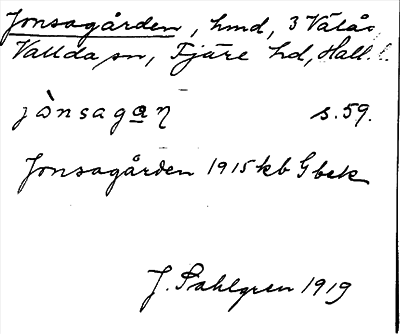 Jonsagården, hmd, 3 Välås
Vallda sn, Fjäre hd, Hall. l.
jònsagaɳ s.59.
Jonsagården 1915 kb Gbek
J. Sahlgren 1919